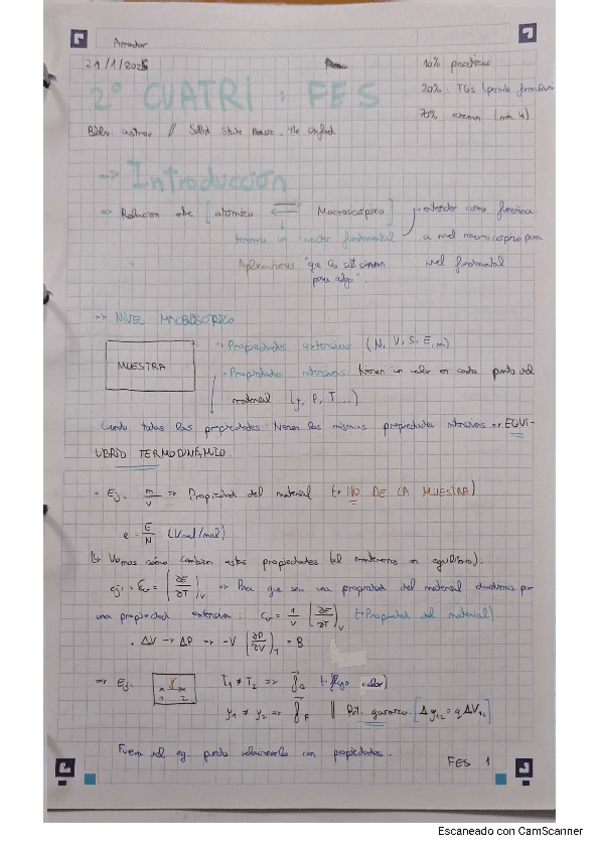 Amador
21/1/2025
10% practicas
20% TGs (permite formulario
70% examen (min 4)
2º CUATRI: FES
Biblio: // Solid State The Oxford.
-> Introducción
=> Relacion entre [atómico <-> Macroscópico] entender como funciona
tenemos un caracter fundamental a nivel macroscópico para
Aplicativas "que las utilizamos nivel fundamental
para algo".
=> NIVEL MACROSCÓPICO
MUESTRA
Propiedades extensivas (N, V, S, E, m)
Propiedades intensivas tienen un valor en cada punto del
material (y, P, T...)
Cuando todas las propiedades tienen las mismas propiedades intensivas => EQUI-
LIBRIO TERMODINÁMICO.
Ej. m/V => Propiedad del material (-> NO DE LA MUESTRA)
e = E/N (/mol)
Vemos cómo cambian estas propiedades (al mantenerse en equilibrio).
ej: Cv = (∂E/∂T)V => Para que sea una propiedad del material dividimos por
una propiedad extensiva: cv = 1/V (∂E/∂T)V (-> Propiedad del material)
ΔV -> ΔP => -V (∂P/∂V)T = B
=> Ej. x x 1 2 T1 ≠ T2 => jQ (-> flujo calor)
y1 ≠ y2 => jP || Pot. [Δy12 = qΔV12]
Fuera del eq. puedo relacionarlo con propiedades.
FES 1
Escaneado con CamScanner